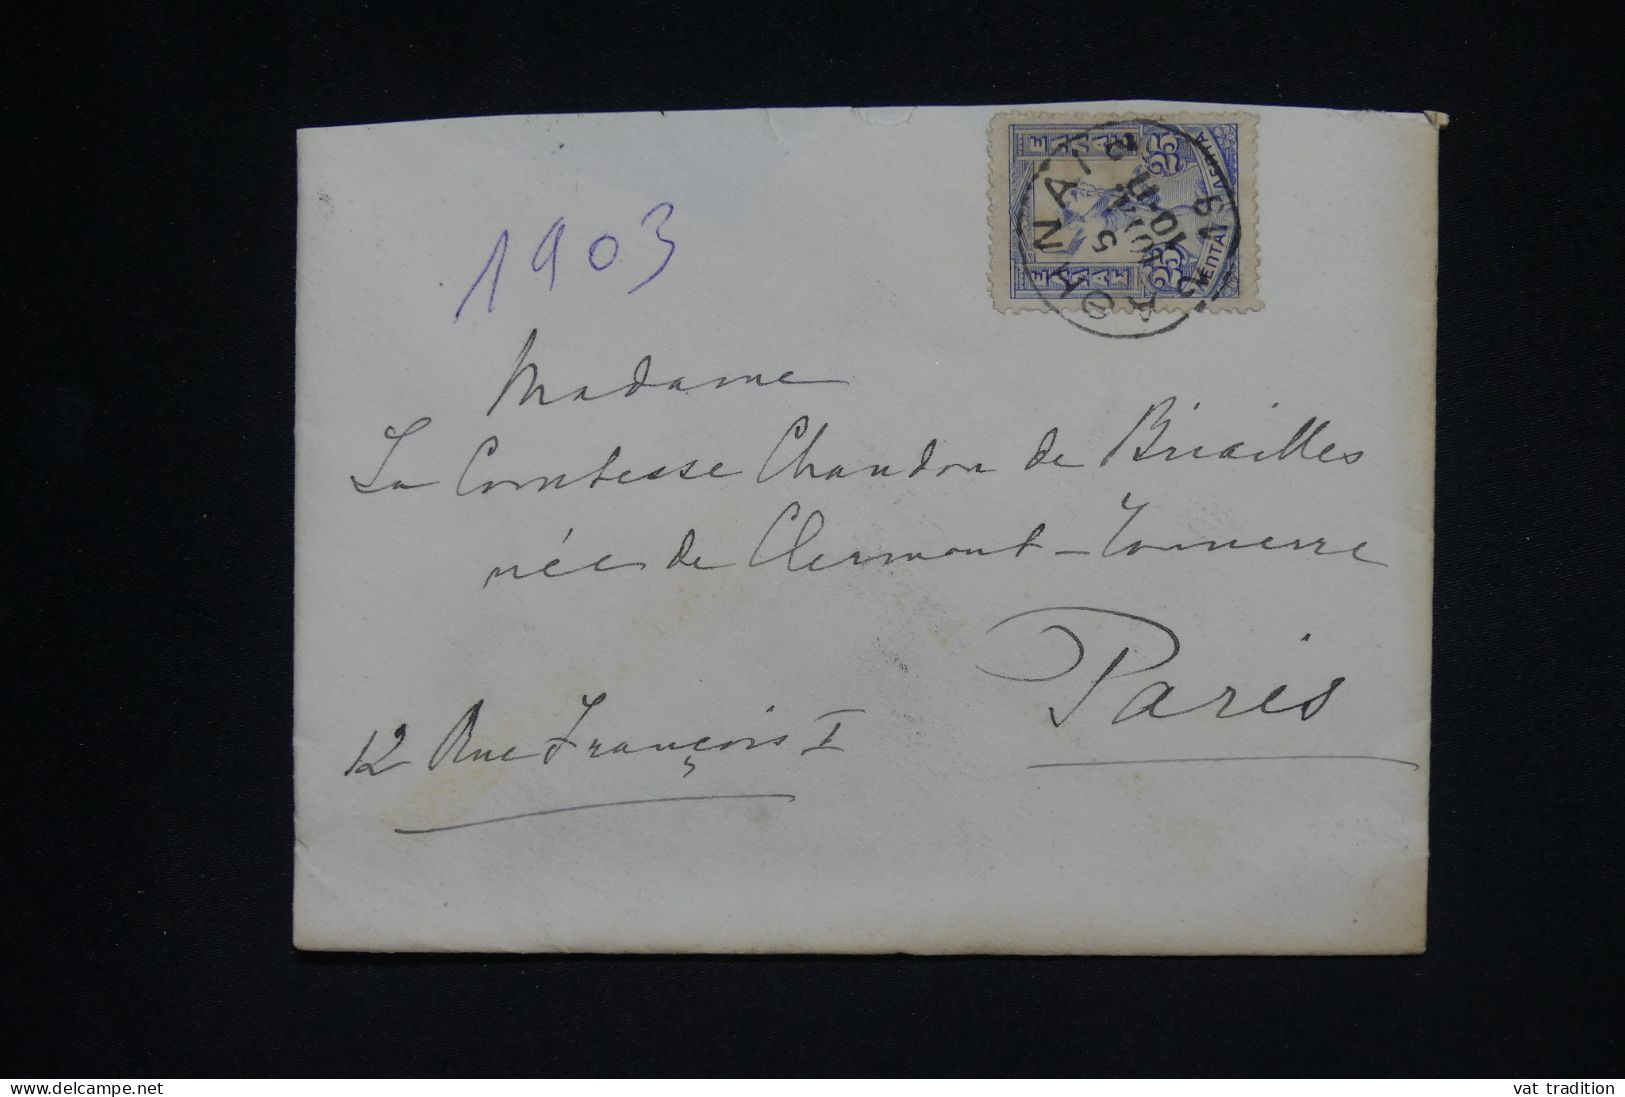 1903
ΕΛΛΑΣ
ΕΛΛΑΣ
25
25
ΛΕΠΤΑ
ΛΕΠΤΑ
ΑΘΗΝΑΙ 2
5
Madame
La Comtesse Chandon de Briailles
née de Clermont-Tonnerre
Paris
12 Rue François I
www.delcampe.net
vat tradition